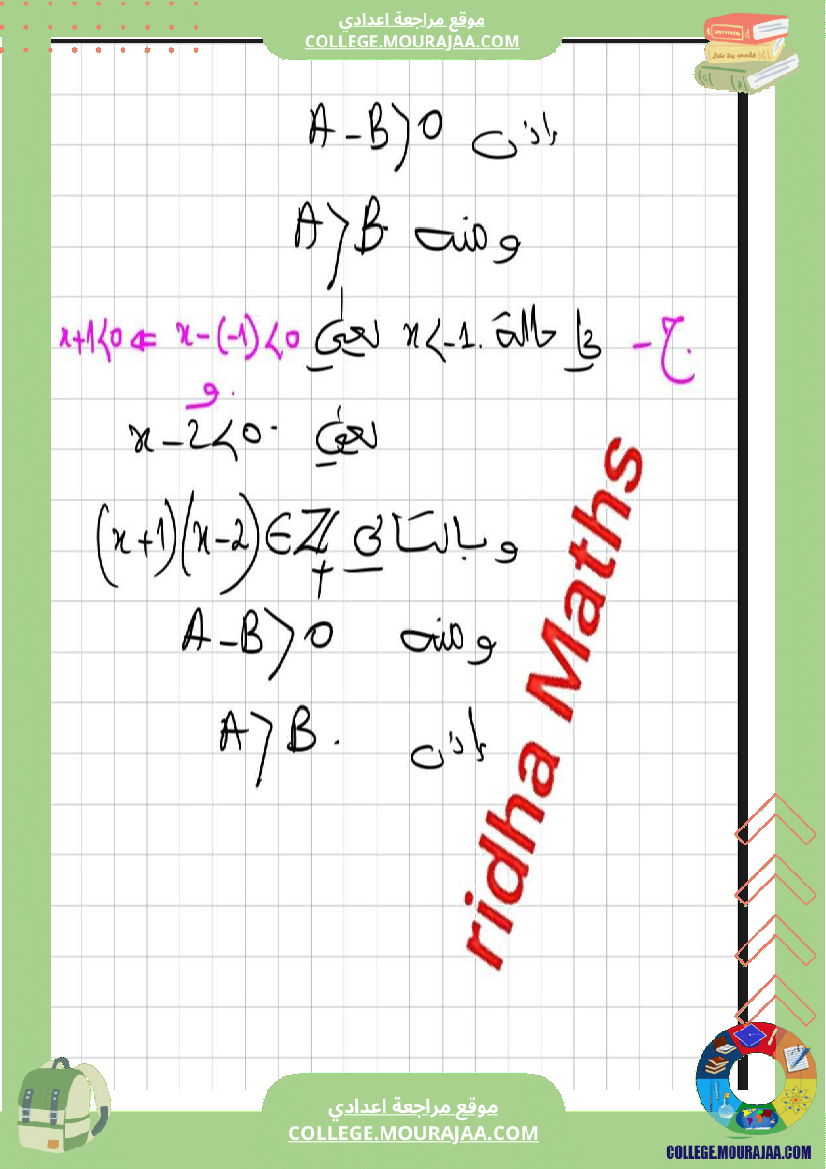 موقع مراجعة اعدادي
COLLEGE.MOURAJAA.COM
إذن A-B>0
ومنه A>B
ج- في حالة x<-1. يعني x-(-1)<0 ⇐ x+1<0
و.
يعني x-2<0.
وبالتالي (x+1)(x-2)∈ℤ+
ومنه A-B>0
إذن A>B.
ridha Maths
موقع مراجعة اعدادي
COLLEGE.MOURAJAA.COM
COLLEGE.MOURAJAA.COM